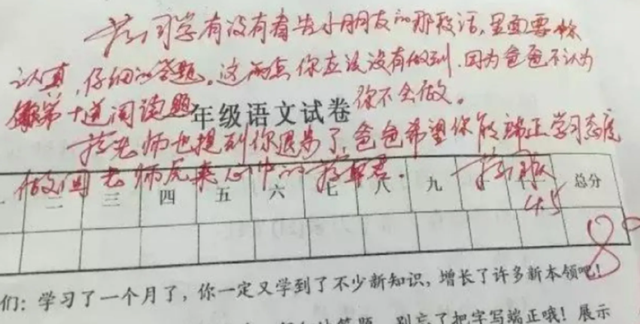 同学有没有看告小朋友的那段话,里面要你
认真,仔细的答题。这两点你应该没有做到,因为爸爸不认为
第十道阅读题你不会做。
年级语文试卷
老师也提到你退步了,爸爸希望你能端正学习态度
做回老师原来心中的
二 三 四 五 六 七 八 九 总分
4.5
8
们:学习了一个月了,你一定又学到了不少新知识,增长了许多新本领吧!
别忘了把字写端正哦!展示